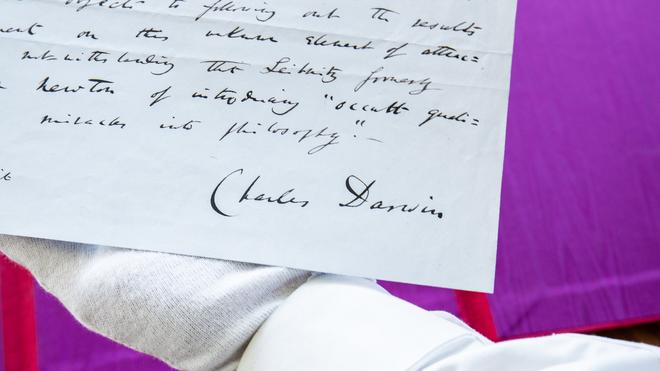 objects to following out the results
on this unknown element of attrac=
notwithstanding that Leibnitz formerly
Newton of introducing "occult quali=
miracles into philosophy."—
Charles Darwin